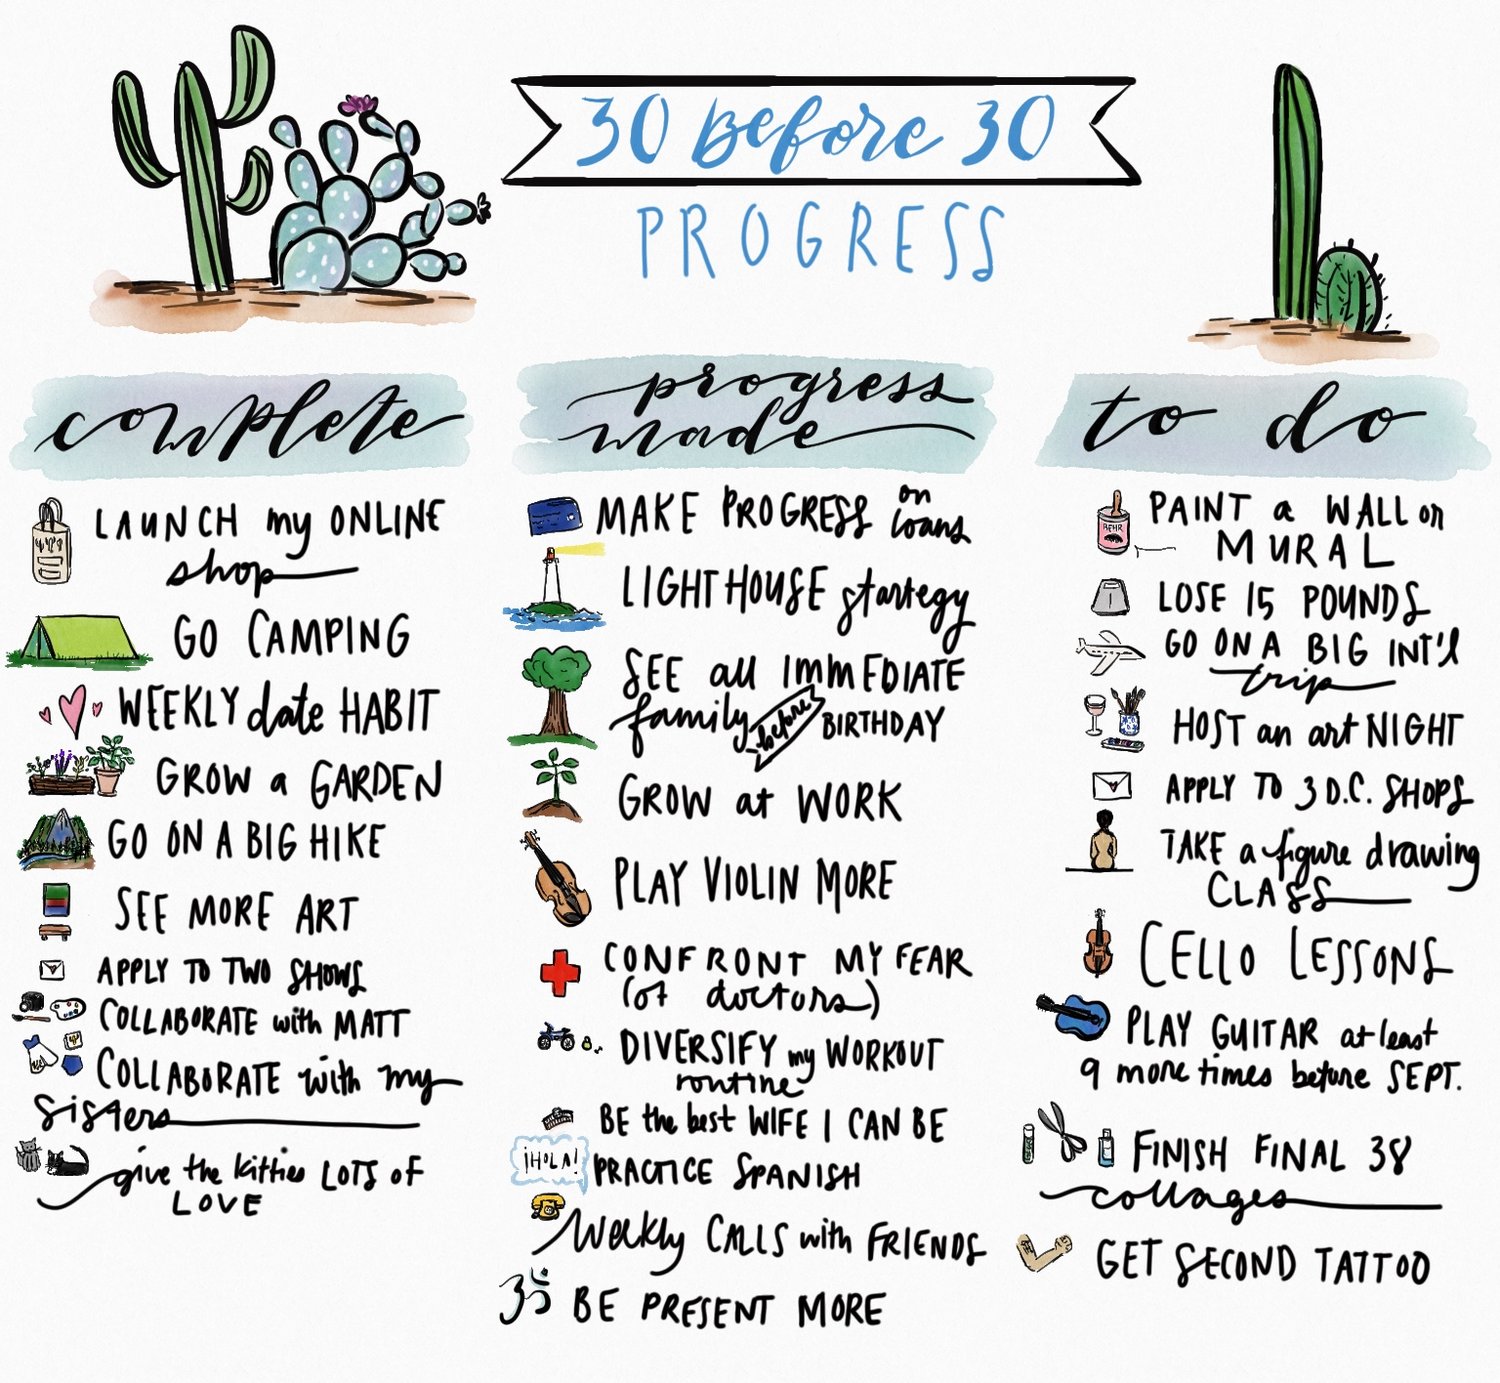 30 Before 30
PROGRESS
complete
LAUNCH my ONLINE
shop
GO CAMPING
WEEKLY date HABIT
GROW a GARDEN
GO ON A BIG HIKE
SEE MORE ART
APPLY TO TWO SHOWS
COLLABORATE with MATT
COLLABORATE with my
sisters
give the kitties LOTS OF
LOVE
progress
made
MAKE PROGRESS on
loans
LIGHTHOUSE startegy
SEE all IMMEDIATE
family before BIRTHDAY
GROW at WORK
PLAY VIOLIN MORE
CONFRONT MY FEAR
(of doctors)
DIVERSIFY my WORKOUT
routine
BE the best WIFE I CAN BE
¡HOLA!
PRACTICE SPANISH
Weekly CALLS with FRIENDS
ॐ
BE PRESENT MORE
to do
BEHR
PAINT a WALL or
MURAL
LOSE 15 POUNDS
GO ON A BIG INT'l
trip
HOST an art NIGHT
APPLY TO 3 D.C. SHOPS
TAKE a figure drawing
CLASS
CELLO LESSONS
PLAY GUITAR at least
9 more times before SEPT.
FINISH FINAL 38
collages
GET SECOND TATTOO